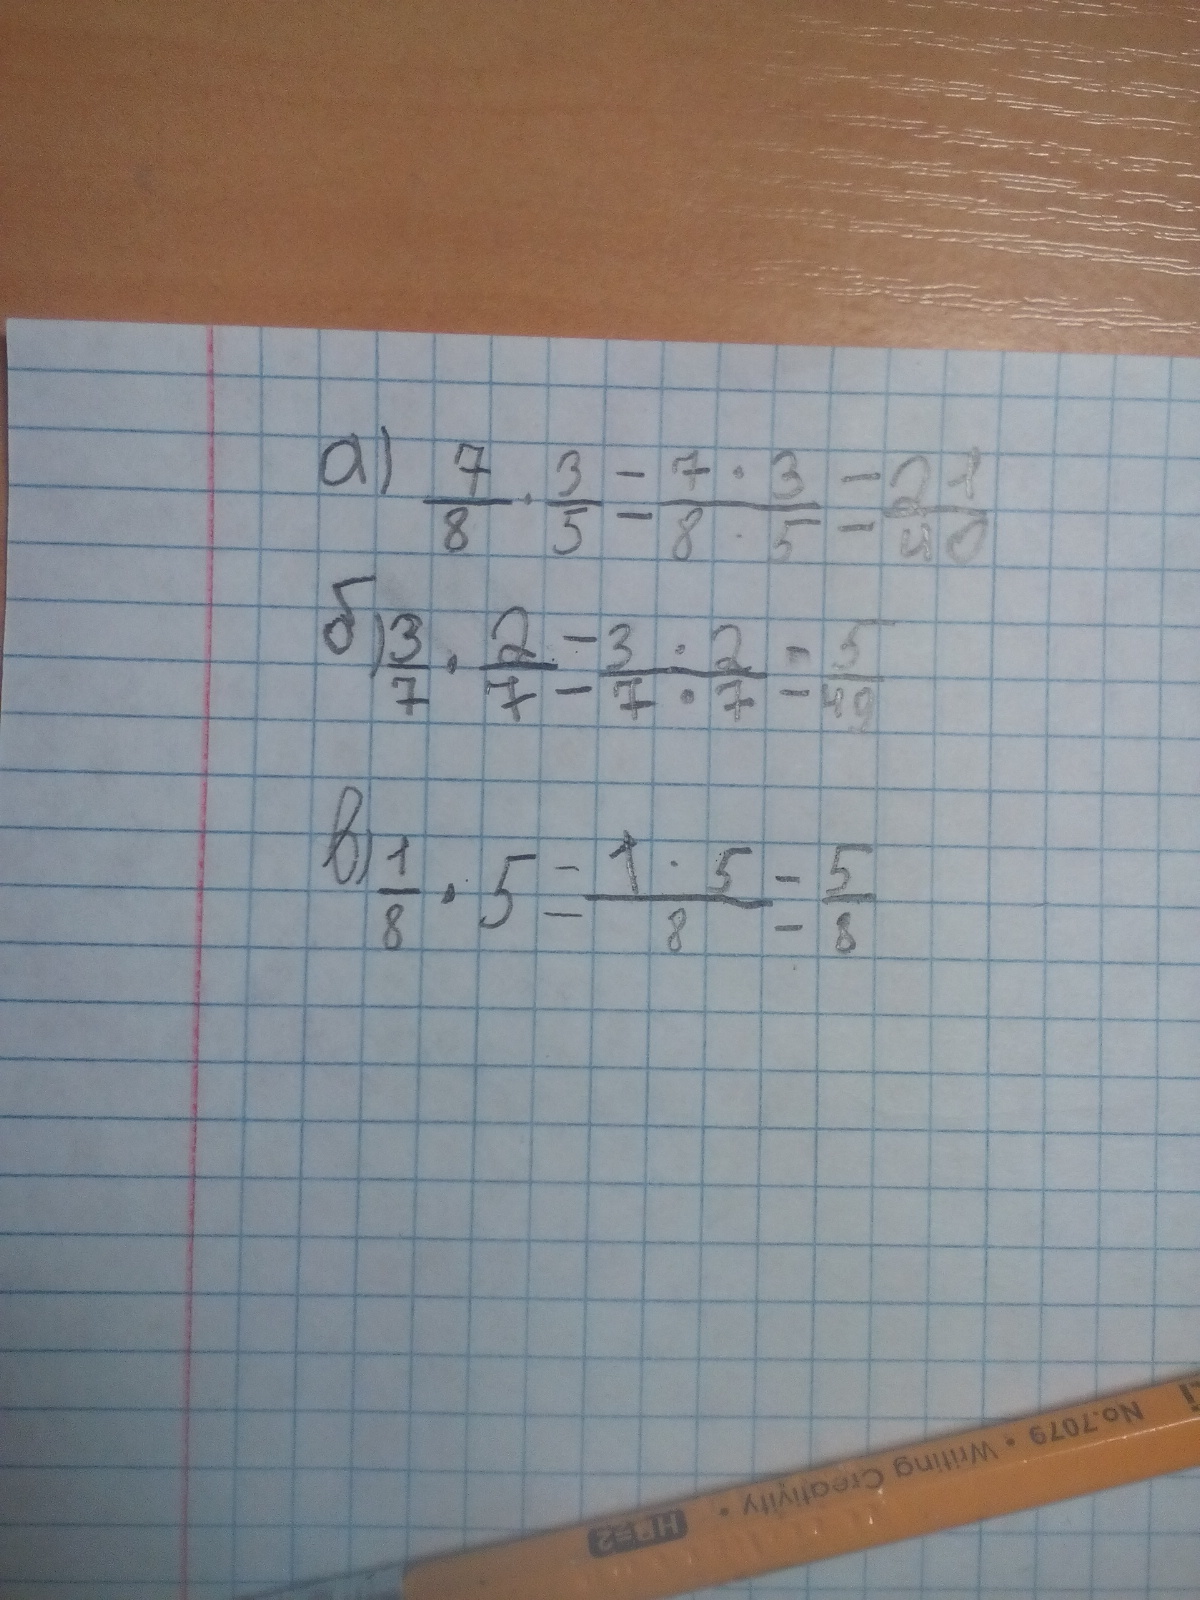 а) 7/8 · 3/5 = 7 · 3/8 · 5 = 21/40
б) 3/7 · 2/7 = 3 · 2/7 · 7 = 5/49
в) 1/8 · 5 = 1 · 5/8 = 5/8
No.7079 • Writing Creativity • HB=2